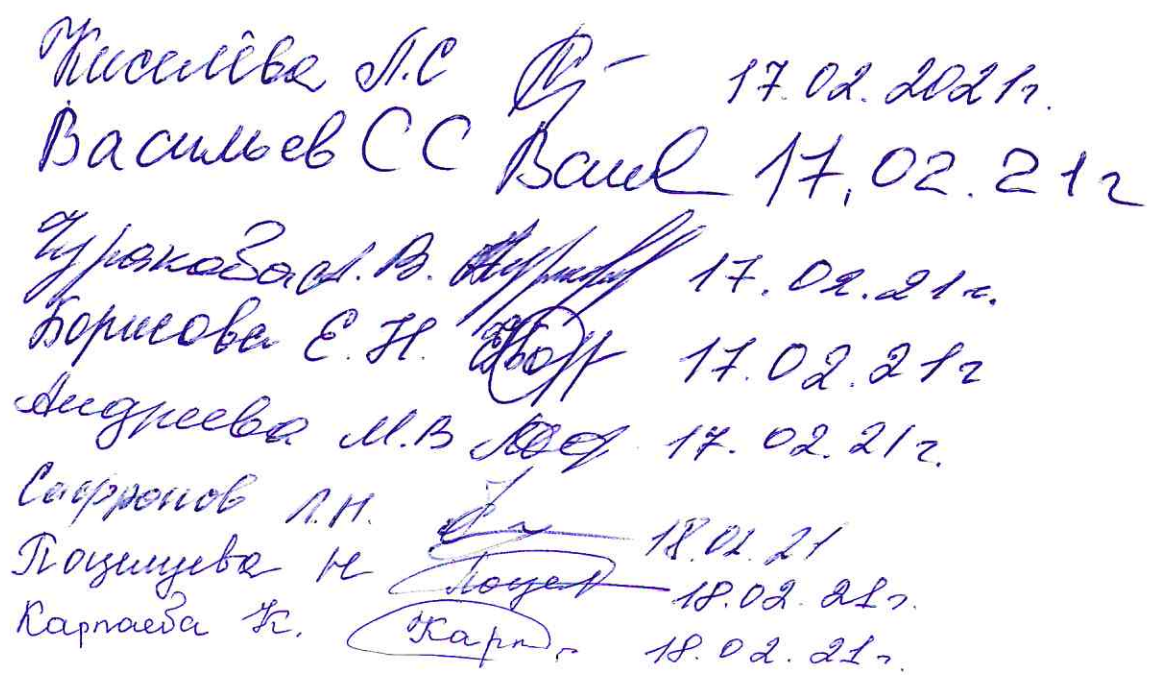 Киселёва Л.С 17.02.2021г.
Васильев С С Васил 17.02.21г
Чуракова А.В. 17.02.21г.
Борисова Е.Н. 17.02.21г
Андреева М.В 17.02.21г.
Сафронов Л.Н. 18.02.21
Н 18.02.21г.
Карпаева К. Карп 18.02.21г.